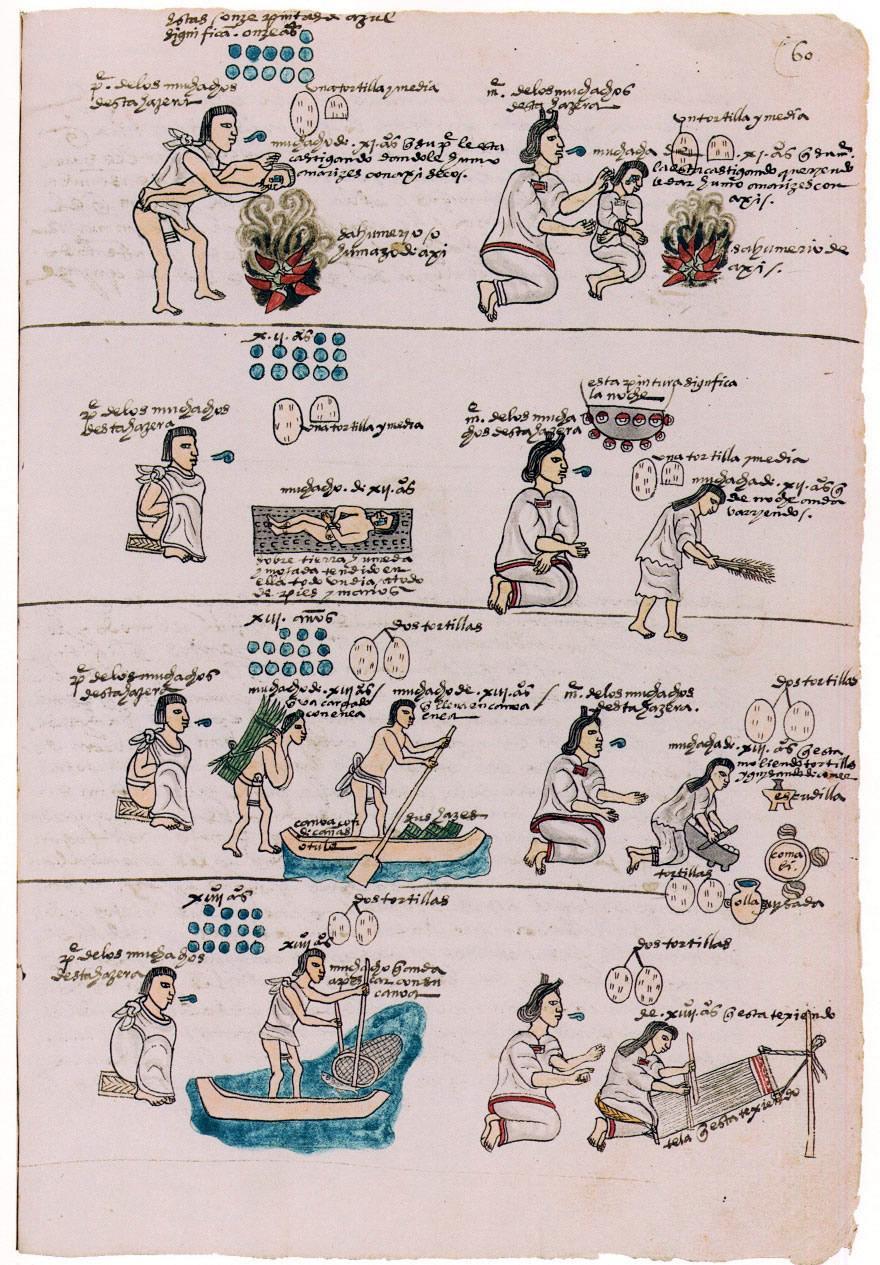 estas onze pintadas azul
significa. onze as
60
pe. delos muchachos
desta hazera
una tortilla y media
muchacho de. xi. as q su pe le esta
castigando dandole humo
a narizes con axi secos.
sahumerio o
humazo de axi
me. delos muchachos
desta hazera
un tortilla y media
muchacha de .xi. as q su me.
la esta castigando queriendo
le dar humo a narizes con
axi.
sahumerio de
axi.
xii. as
pe delos muchachos
desta hazera
una tortilla y media
muchacho. de xii. as
sobre tierra humeda
y mojada tendido en
ella todo un dia, atado
de pies y manos
esta pintura significa
la noche
me. delos mucha
chos desta hazera
una tortilla y media
muchacha de. xii. as q
de noche anda
varryendo.
xiii. años
dos tortillas
pe delos muchachos
desta hazera
muchacho de. xiii as
q va cargado
con enea
muchacho de. xiii. as
q lleva en canoa
enea
canoa con
de cañas
o tule
sus hazes
me. delos muchachos
desta hazera.
dos tortillas
muchacha de. xiii. as q esta
moliendo tortillas
escudilla
comali.
tortillas
olla
xiiii as
dos tortillas
pe. delos muchachos
desta hazera
xiiii as
muchacho q anda
a pescar con su
canoa
dos tortillas
de. xiiii. as q esta texiendo
tela q esta texiendo